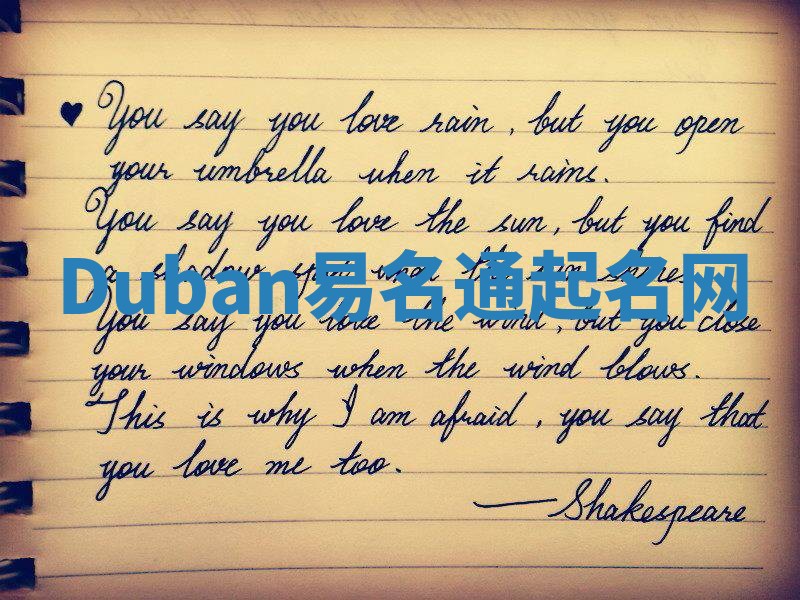 ♥ You say you love rain, but you open
your umbrella when it rains.
You say you love the sun, but you find
a shadow spot when the sun shines.
Duban易名通起名网
You say you love the wind, but you close
your windows when the wind blows.
This is why I am afraid, you say that
you love me too.
—Shakespeare